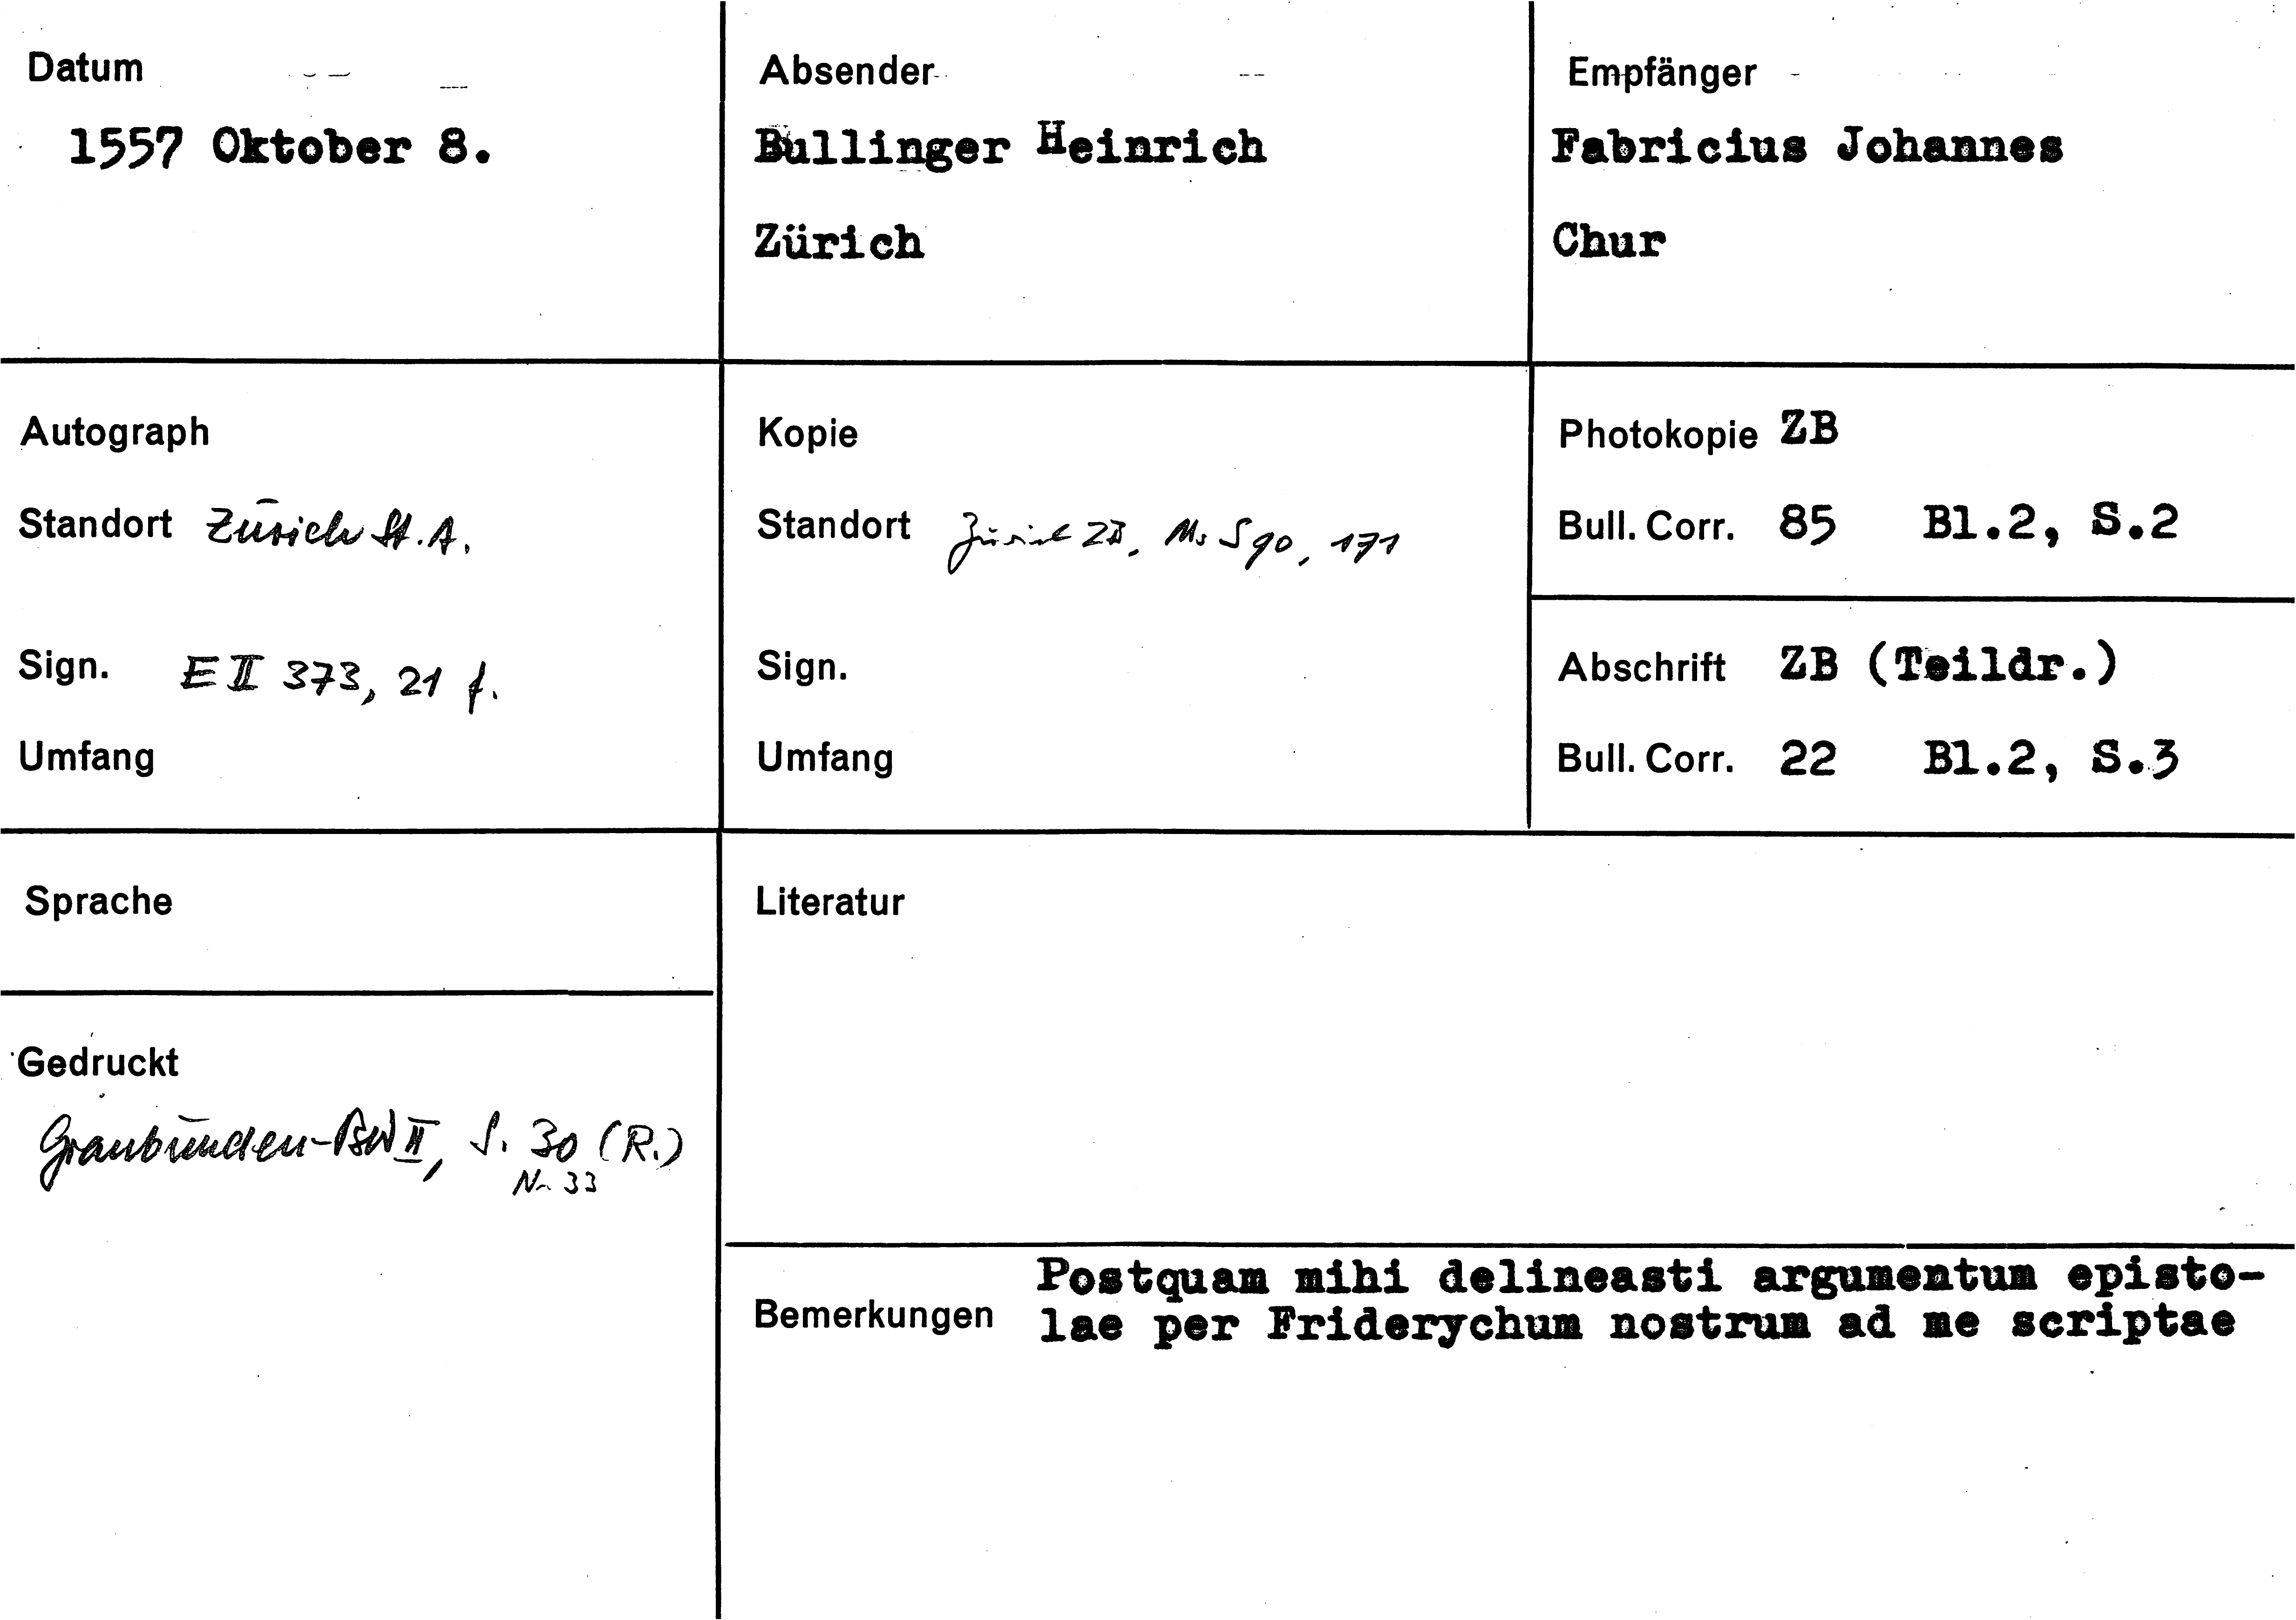 Datum
1557 Oktober 8.
Absender
Bullinger Heinrich
Zürich
Empfänger
Fabricius Johannes
Chur
Autograph
Standort Zürich St. A.
Sign. E II 373, 21 f.
Umfang
Kopie
Standort Zürich ZB, Ms S 90, 171
Sign.
Umfang
Photokopie ZB
Bull. Corr. 85 Bl.2, S.2
Abschrift ZB (Teildr.)
Bull. Corr. 22 Bl.2, S.3
Sprache
Gedruckt
Graubünden-BW II, S. 30 (R.)
Nr. 33
Literatur
Bemerkungen
Postquam mihi delineasti argumentum episto-
lae per Friderychum nostrum ad me scriptae